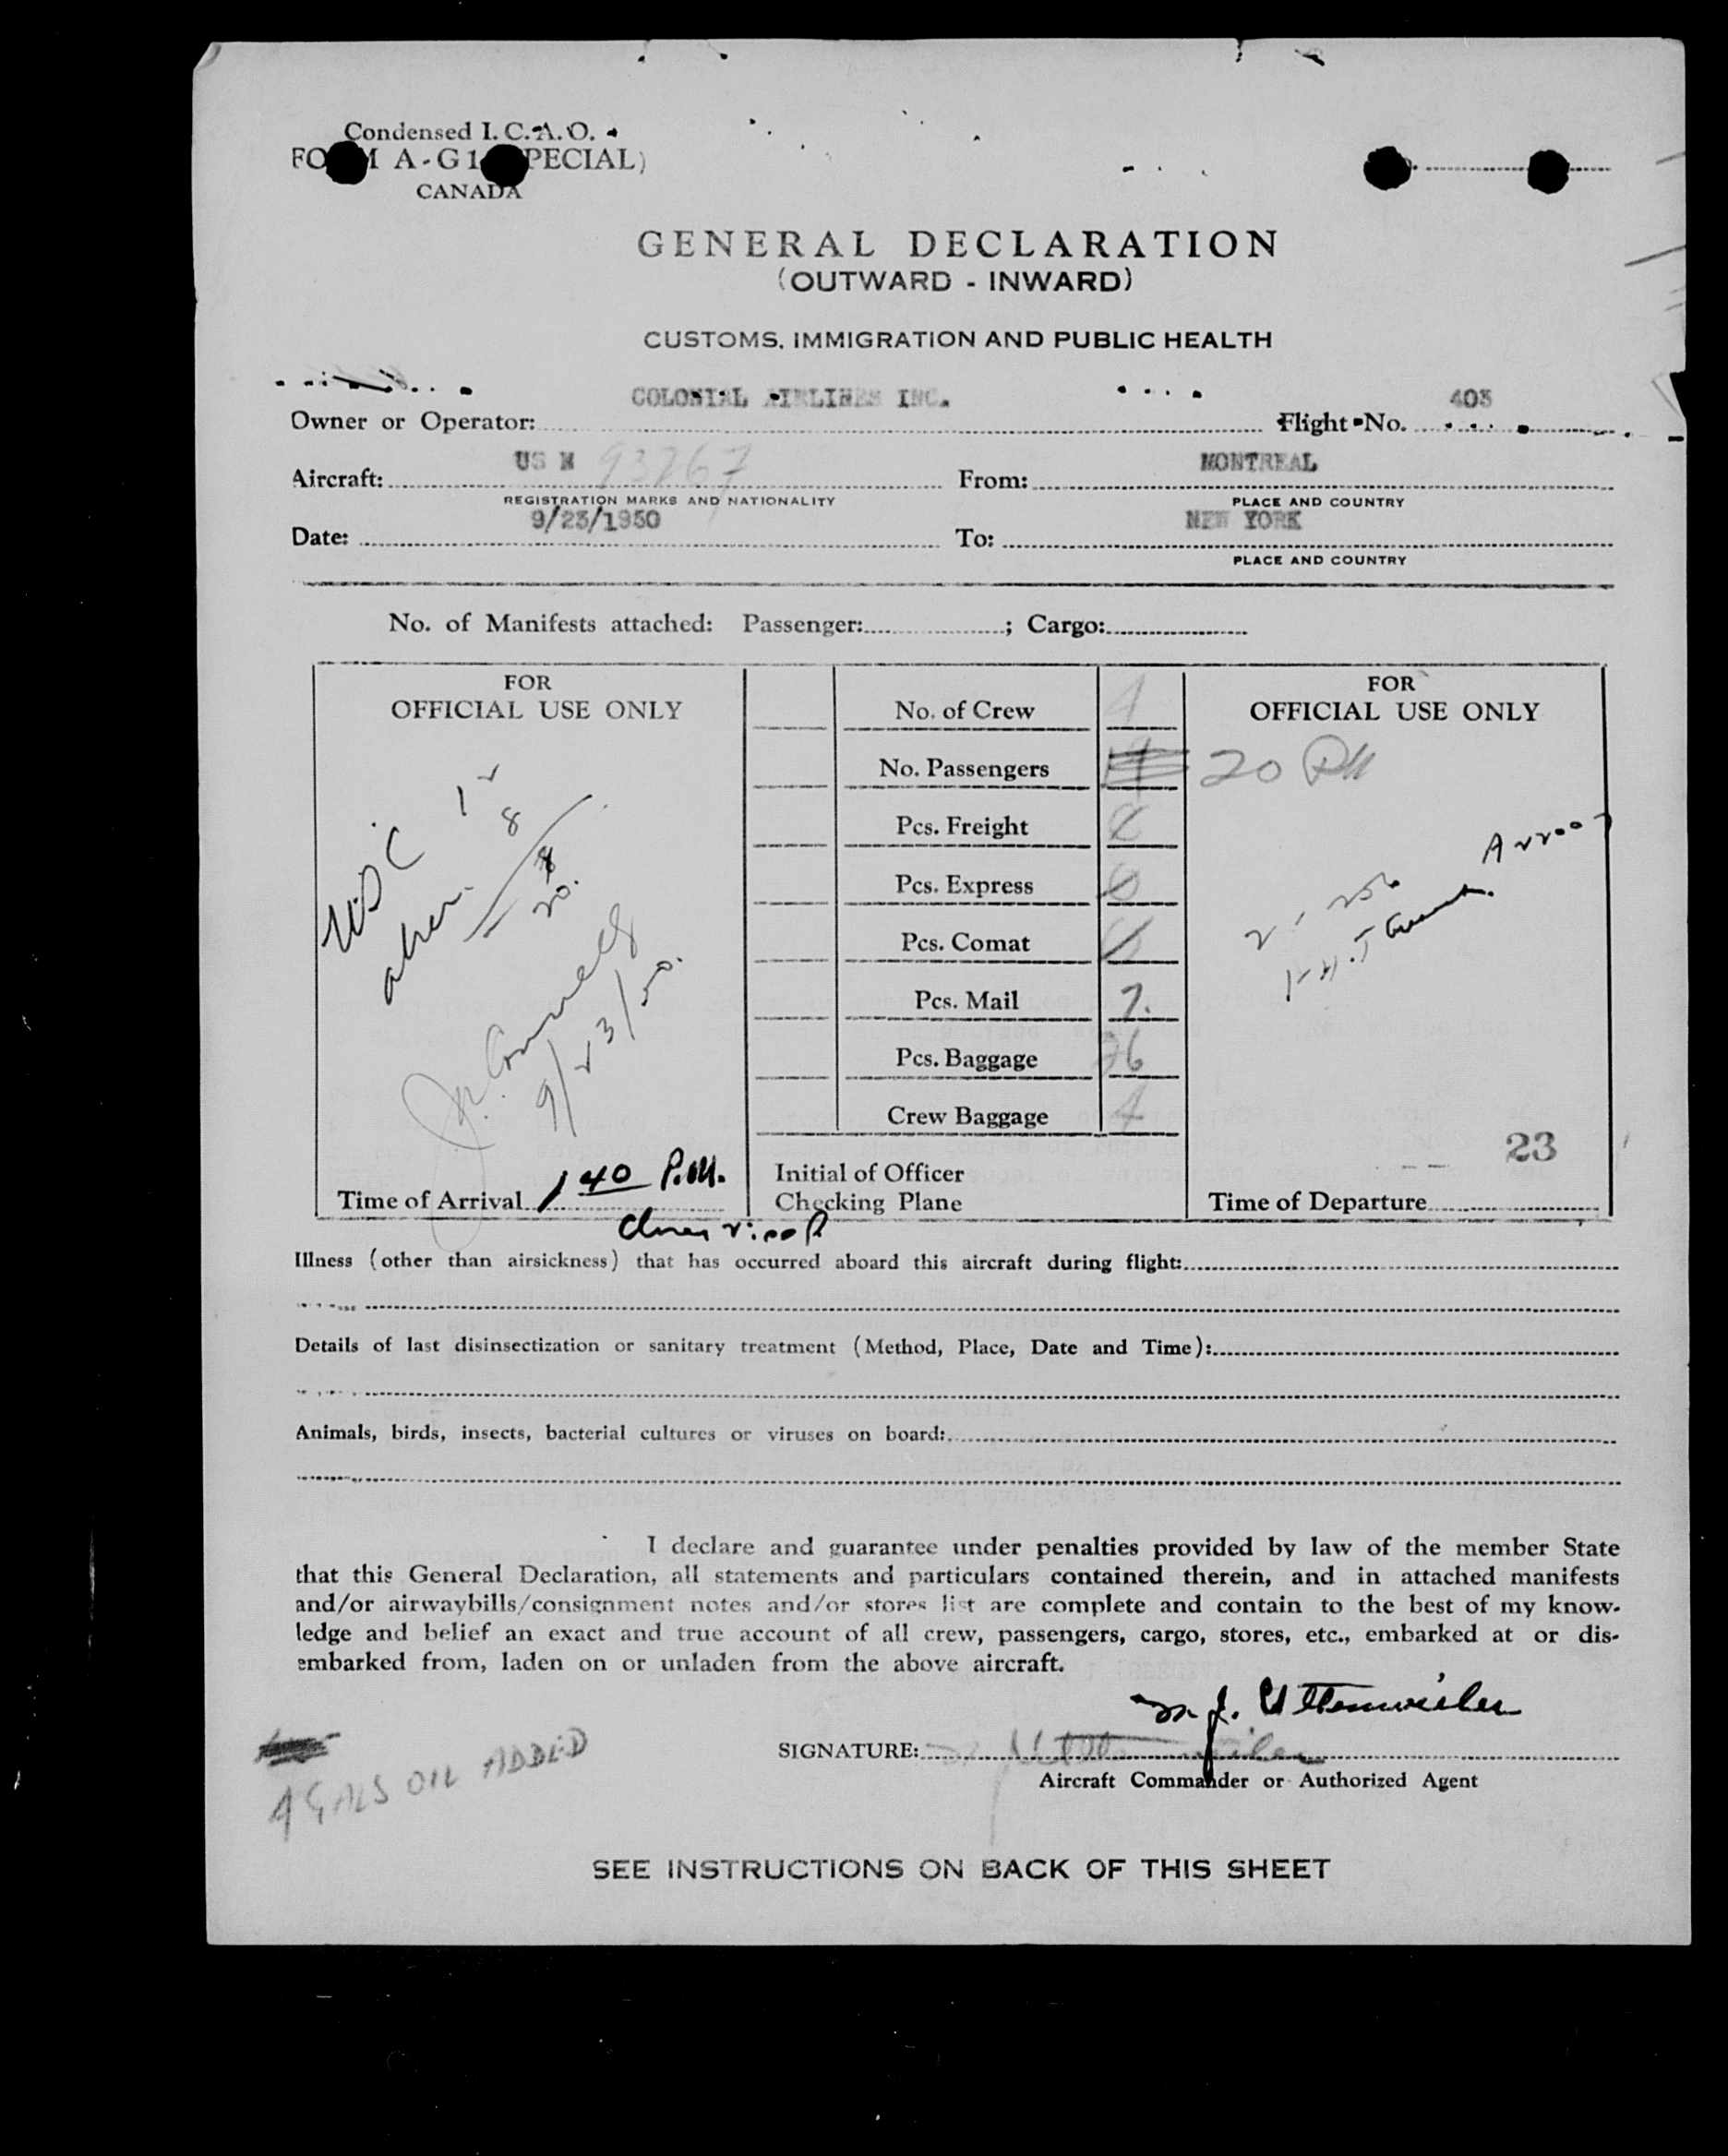 Condensed I. C. A. O.
FO M A-G1 PECIAL)
CANADA
GENERAL DECLARATION
(OUTWARD - INWARD)
CUSTOMS, IMMIGRATION AND PUBLIC HEALTH
Owner or Operator: COLONIAL AIRLINES INC. Flight No. 403
Aircraft: US N 93267 From: MONTREAL
REGISTRATION MARKS AND NATIONALITY PLACE AND COUNTRY
Date: 9/23/1950 To: NEW YORK
PLACE AND COUNTRY
No. of Manifests attached: Passenger: ; Cargo:
FOR
OFFICIAL USE ONLY
USC 12
alien 8
20.
9/23/50.
Time of Arrival 1 40 P.M.
No. of Crew 4
No. Passengers
Pcs. Freight
Pcs. Express
Pcs. Comat
Pcs. Mail 7.
Pcs. Baggage 26
Crew Baggage 4
Initial of Officer
Checking Plane
FOR
OFFICIAL USE ONLY
20
23
Time of Departure
Illness (other than airsickness) that has occurred aboard this aircraft during flight:
Details of last disinsectization or sanitary treatment (Method, Place, Date and Time):
Animals, birds, insects, bacterial cultures or viruses on board:
I declare and guarantee under penalties provided by law of the member State
that this General Declaration, all statements and particulars contained therein, and in attached manifests
and/or airwaybills/consignment notes and/or stores list are complete and contain to the best of my know-
ledge and belief an exact and true account of all crew, passengers, cargo, stores, etc., embarked at or dis-
embarked from, laden on or unladen from the above aircraft.
M. J. Uttenweiler
SIGNATURE:
Aircraft Commander or Authorized Agent
4 GALS OIL ADDED
SEE INSTRUCTIONS ON BACK OF THIS SHEET